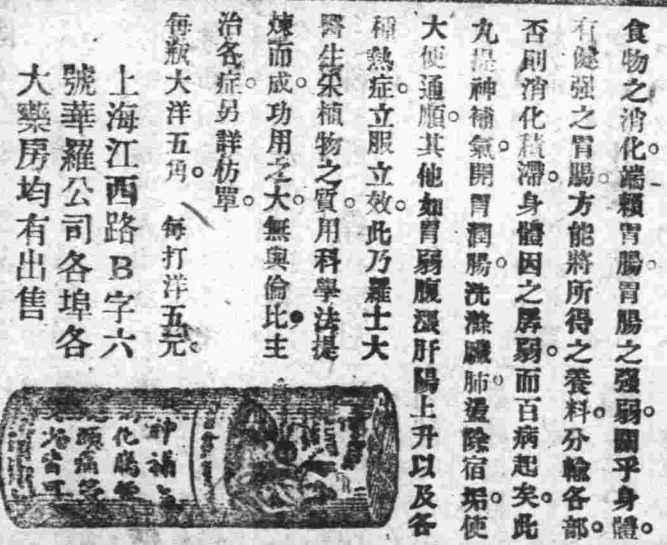 食物之消化。端賴胃腸。胃腸之强弱。關乎身體。
有健强之胃腸。方能將所得之養料。分輸各部。
否則消化積滯。身體因之孱弱。而百病起矣。此
丸提神補氣。開胃潤腸。洗滌臟肺。盪除宿垢。使
大便通順。其他如胃弱腹漲肝陽上升以及各
種熱症。立服立效。此乃羅士大
醫生采植物之質。用科學法提
煉而成。功用之大。無與倫比。主
治各症。另詳枋單。
每瓶大洋五角。 每打洋五元。
上海江西路B字六
號華羅公司各埠各
大藥房均有出售
神補
化腸
頭痛